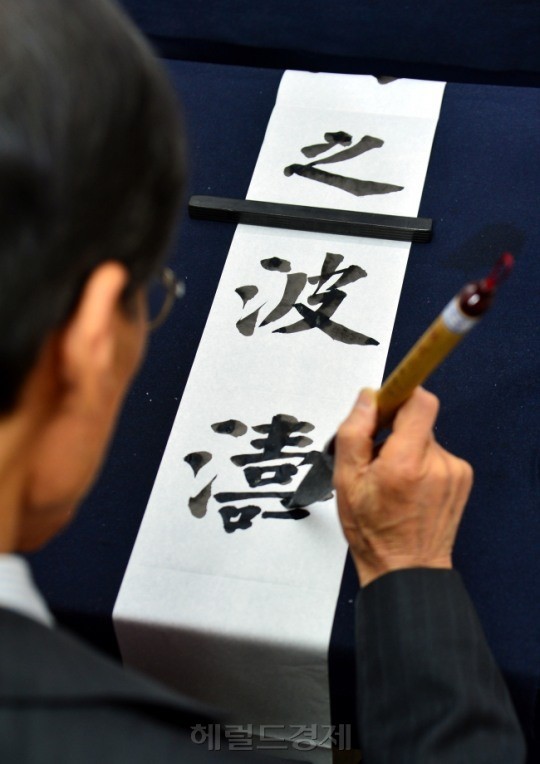 之
波
濤
헤럴드경제